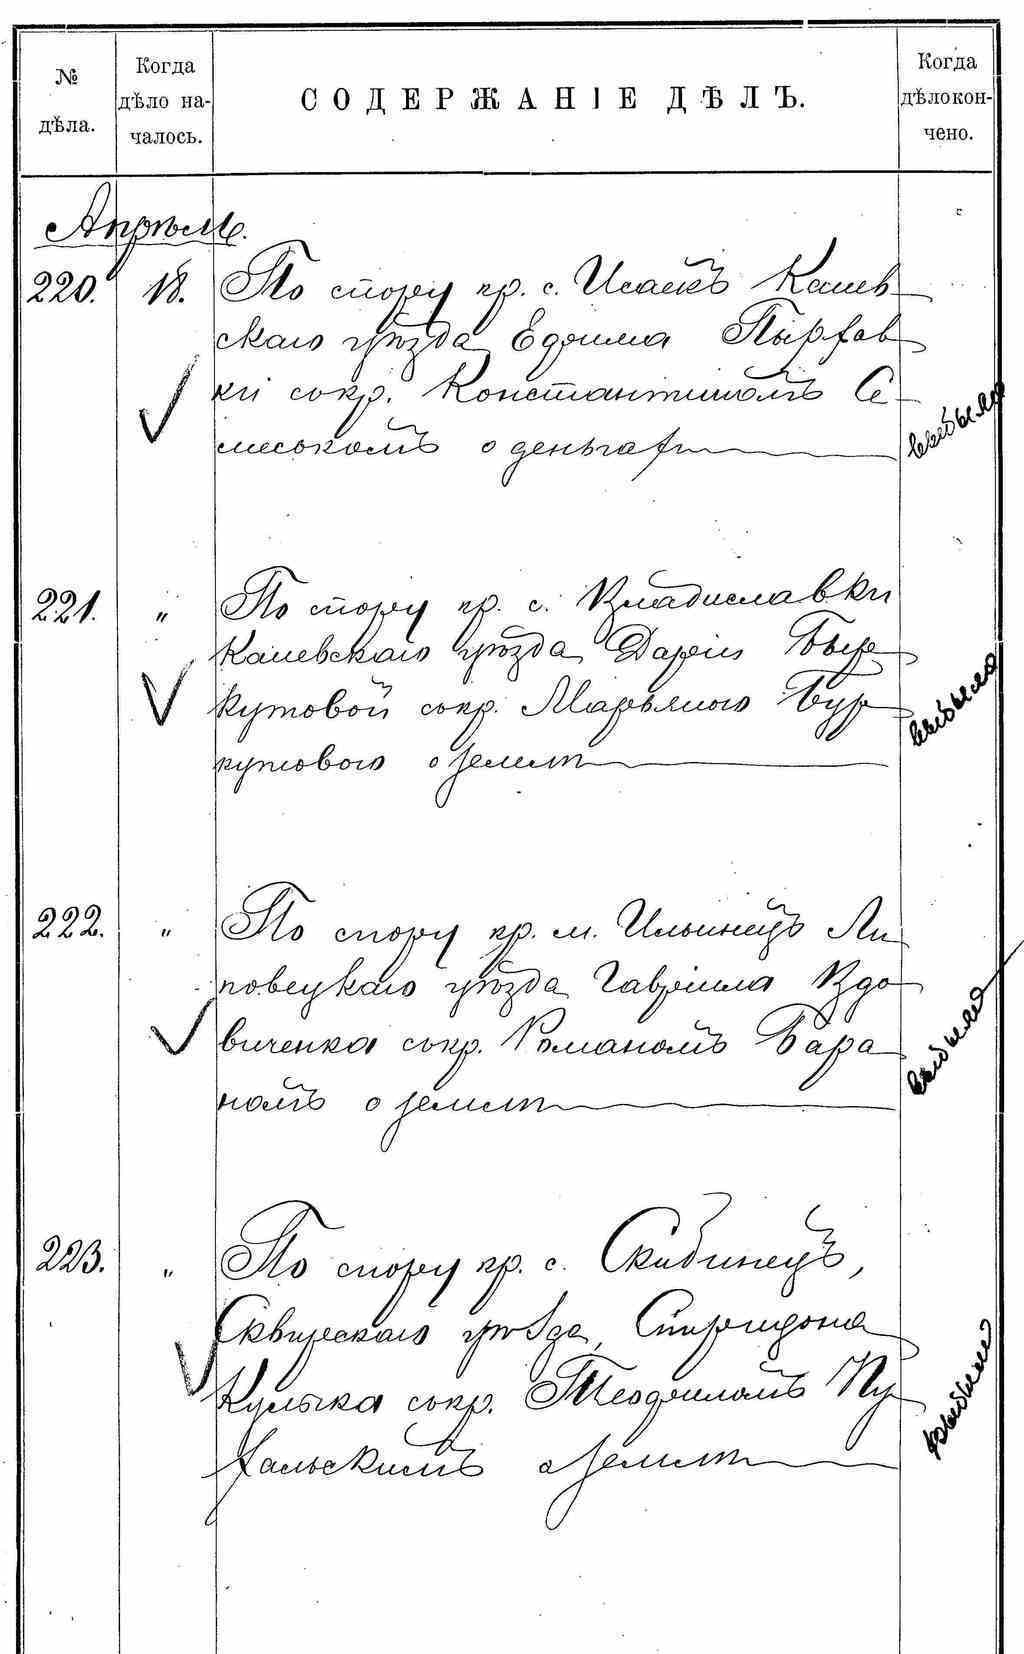 № дѣла.
Когда дѣло на-
чалось.
СОДЕРЖАНІЕ ДѢЛЪ.
Когда дѣлокон-
чено.
Апрѣль.
220. 18. По спору кр. с. Исаекъ Канев
скаго уѣзда Ефима
сокр. Константиномъ Се
о деньгах
221. " По спору кр. с. Владиславки
Каневскаго уѣзда Дарьи Бур
кутовой сокр. Марьяною Бур
кутовою о землѣ
222. " По спору кр. м. Ильинецъ Ли
повецкаго уѣзда Гавріила Вдо
виченка сокр. Романомъ Бара
номъ о землѣ
223. " По спору кр. с. Скибинецъ,
Сквирскаго уѣзда, Спиридона
Кулька сокр. Теофиломъ
о землѣ